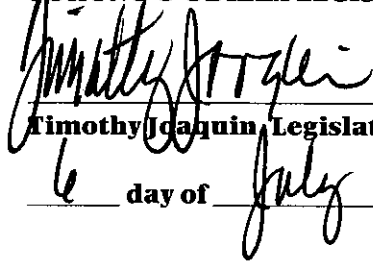 Timothy Joaquin
Timothy Joaquin, Legislat
6 day of July